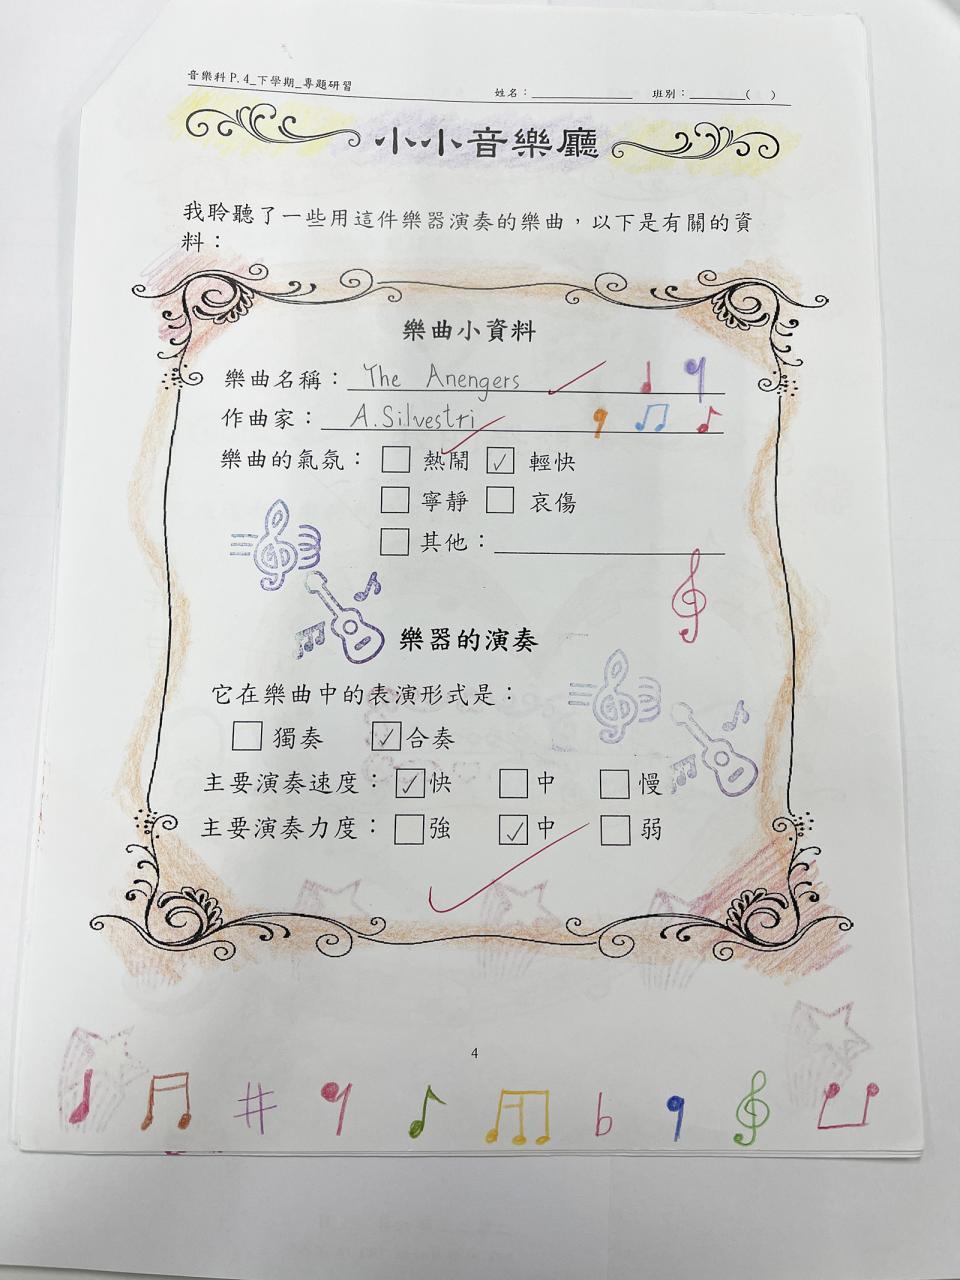 音樂科 P.4_下學期_專題研習
姓名：____________ 班別：_______( )
小小音樂廳
我聆聽了一些用這件樂器演奏的樂曲，以下是有關的資
料：
樂曲小資料
樂曲名稱：The Anengers
作曲家：A.Silvestri
樂曲的氣氛：□ 熱鬧 ☑ 輕快
□ 寧靜 □ 哀傷
□ 其他：____________
樂器的演奏
它在樂曲中的表演形式是：
□ 獨奏 ☑ 合奏
主要演奏速度：☑ 快 □ 中 □ 慢
主要演奏力度：□ 強 ☑ 中 □ 弱
4